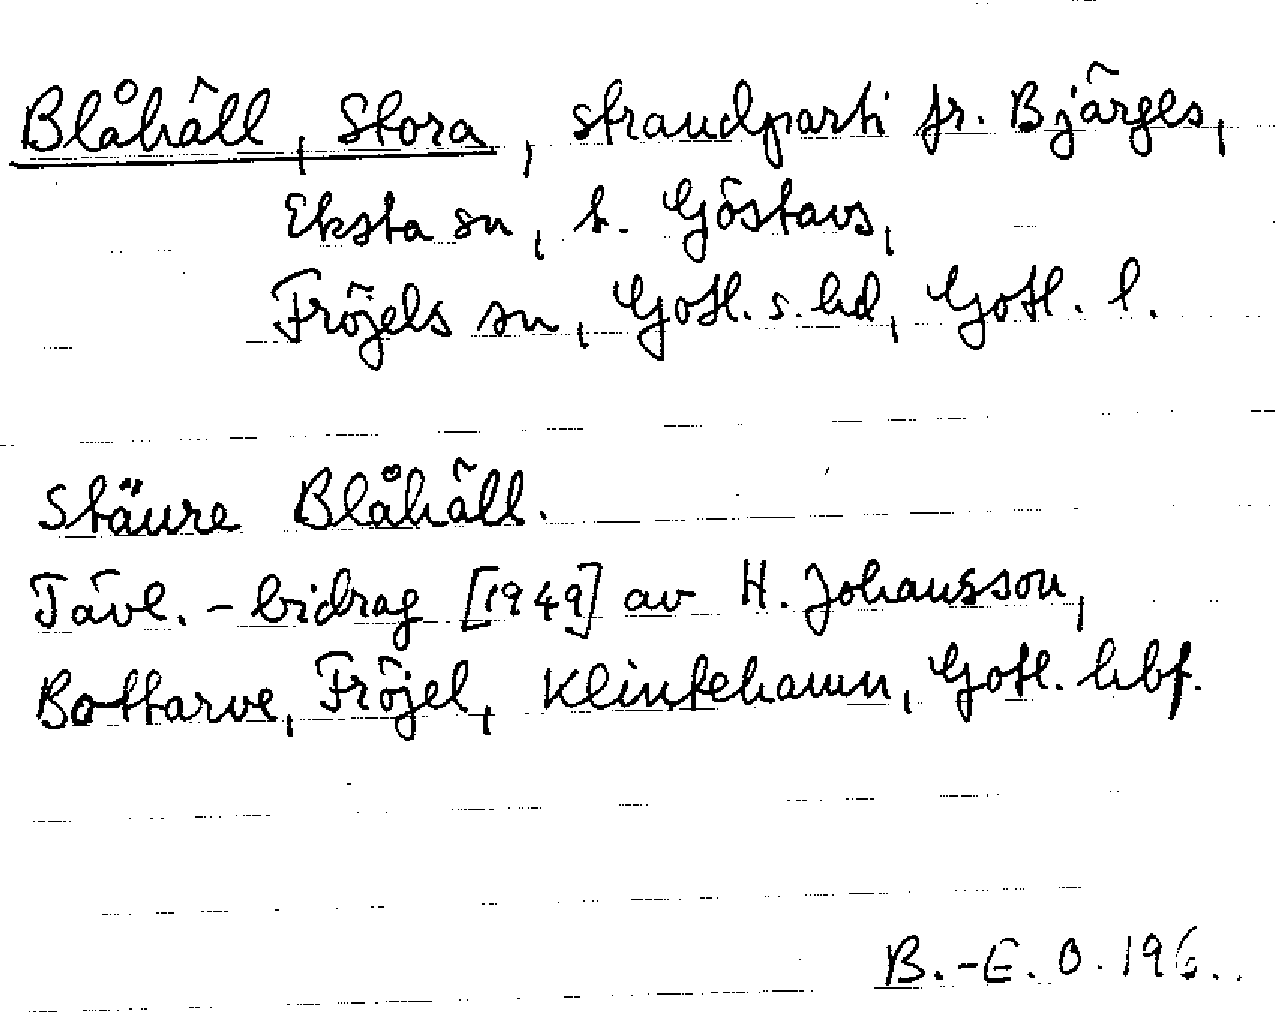 Blåhäll, Stora, strandparti fr. Bjärges,
Eksta sn, t. Göstavs,
Fröjels sn, Gotl. s. hd, Gotl. l.
Stäure Blåhäll.
Tävl.-bidrag [1949] av H. Johansson,
Bottarve, Fröjel, Klintehamn, Gotl. hbf.
B.-E. O. 196..